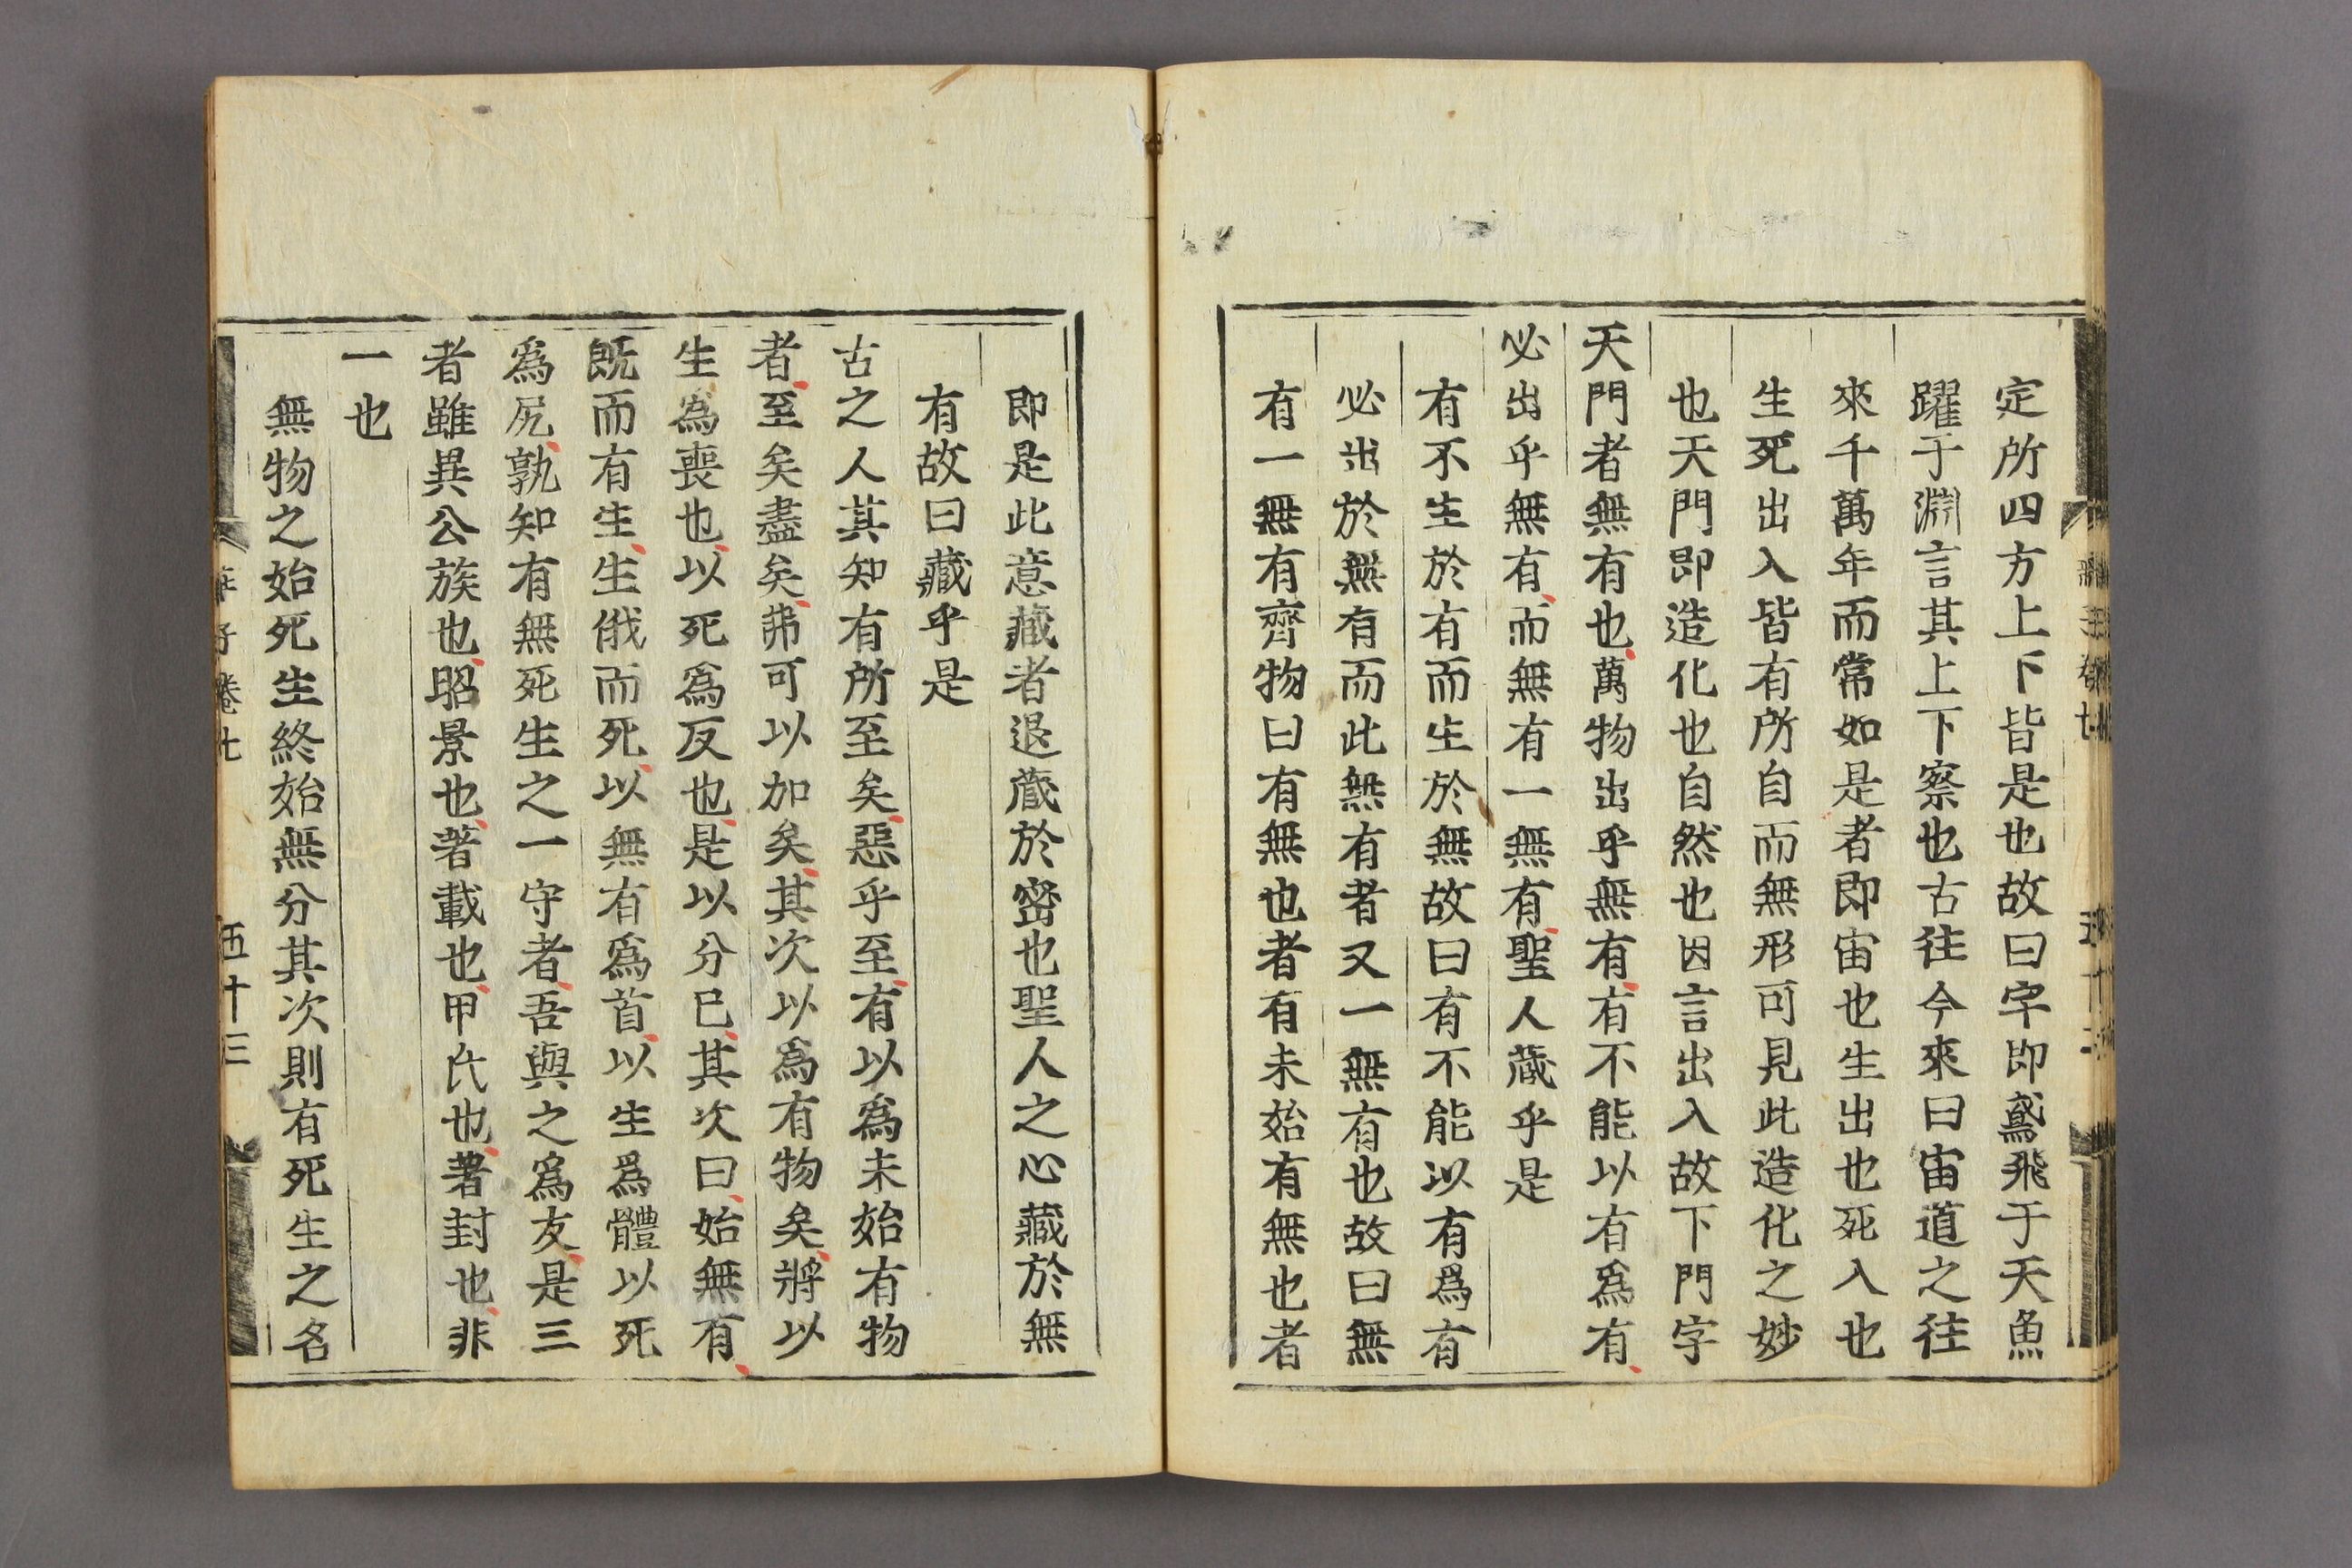 定所四方上下皆是也故曰宇即鳶飛于天魚
躍于淵言其上下察也古往今來曰宙道之往
來千萬年而常如是者即宙也生出也死入也
生死出入皆有所自而無形可見此造化之妙
也天門即造化也自然也因言出入故下門字
天門者無有也萬物出乎無有有不能以有爲有
必出乎無有而無有一無有聖人藏乎是
有不生於有而生於無故曰有不能以有爲有
必出於無有而此無有者又一無有也故曰無
有一無有齊物曰有無也者有未始有無也者
即是此意藏者退藏於密也聖人之心藏於無
有故曰藏乎是
古之人其知有所至矣惡乎至有以爲未始有物
者至矣盡矣弗可以加矣其次以爲有物矣將以
生爲喪也以死爲反也是以分已其次曰始無有
既而有生生俄而死以無有爲首以生爲體以死
爲尻孰知有無死生之一守者吾與之爲友是三
者雖異公族也昭景也著載也甲氏也著封也非
一也
無物之始死生終始無分其次則有死生之名
莊子卷七 五十三